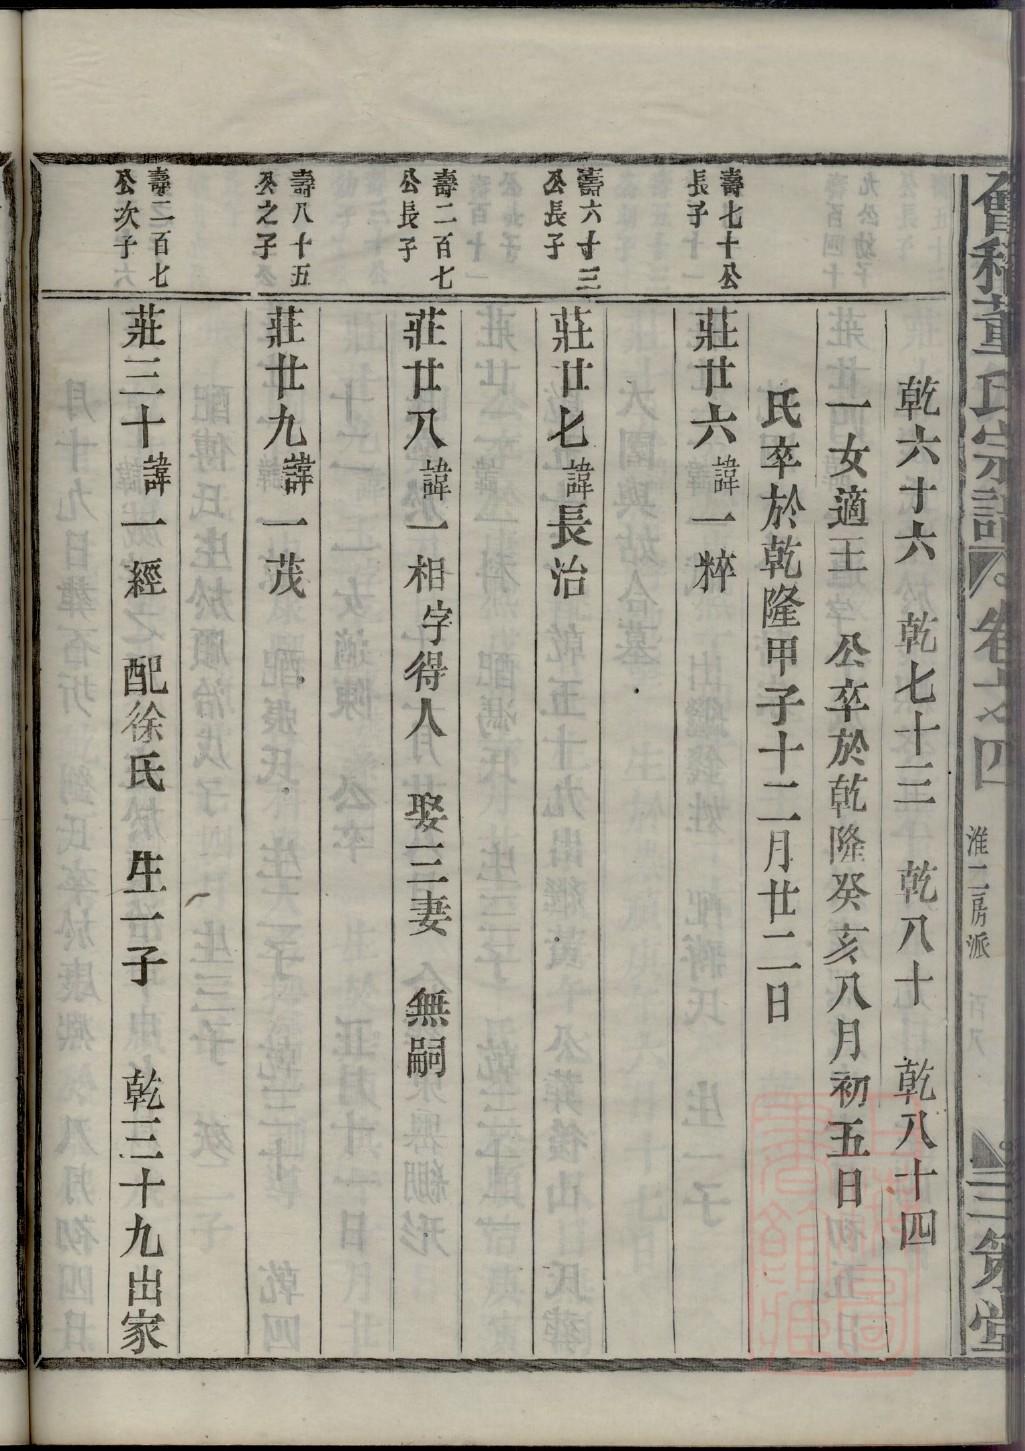 會稽董氏宗譜 卷之四 淮二房派 三策堂
乾六十六 乾七十三 乾八十 乾八十四
一女適王 公卒於乾隆癸亥八月初五日
氏卒於乾隆甲子十二月廿二日
壽七十公
長子
莊廿六諱一粹
壽六十三
公長子
莊廿七諱長治
壽二百七
公長子
莊廿八諱一相字得人 娶三妻 無嗣
壽八十五
公之子
莊廿九諱一茂
壽二百七
公次子
莊三十諱一經 配徐氏 生一子 乾三十九出家